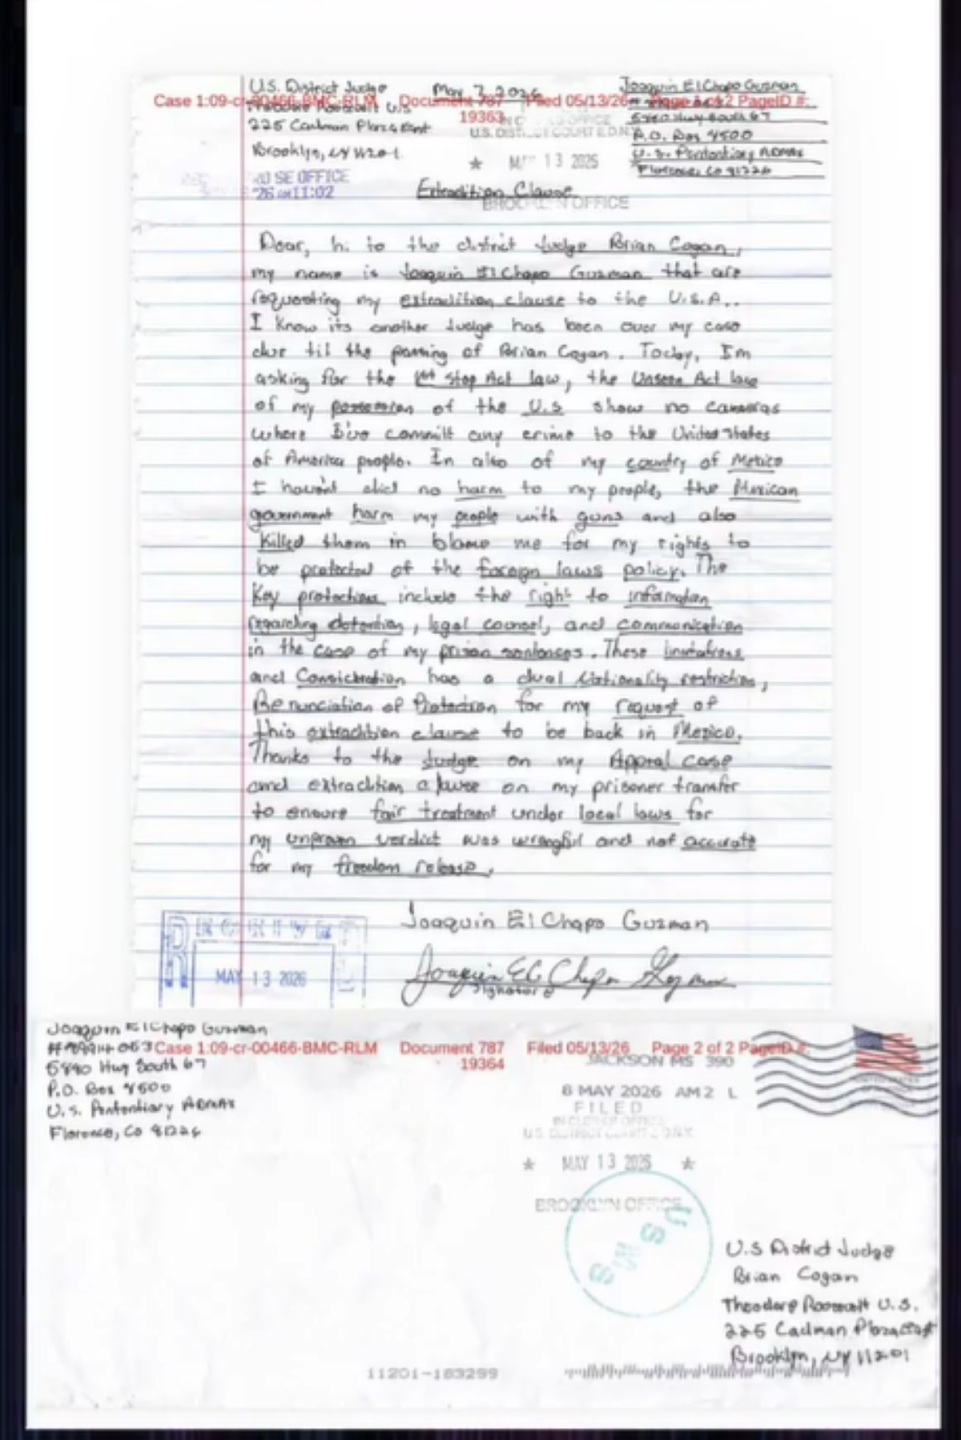 U.S. District Judge
Theodore Roosevelt U.S
225 Cadman Plaza East
Brooklyn, NY 11201
May 7, 2026
Joaquin El Chapo Guzman
5880 Hwy South 67
P.O. Box 8500
U.S. Pentontiary ADMAX
Florence, Co 81226
Case 1:09-cr-00466-BMC-RLM Document 787 Filed 05/13/26 Page 1 of 2 PageID #:
19363
U.S. DISTRICT COURT E.D.N.Y
★ MAY 13 2025 ★
BROOKLYN OFFICE
SE OFFICE
'26 AM11:02
Extradition Clause
Dear, hi to the district Judge Brian Cogan,
my name is Joaquin El Chapo Guzman that are
requesting my extradition clause to the U.S.A..
I know its another Judge has been over my case
due til the passing of Brian Cogan. Today, I'm
asking for the 1st Stop Act law, the Unseen Act law
of my possession of the U.S show no cameras
where I've committ any crime to the United States
of America people. In also of my country of Mexico
I havent did no harm to my people, the Mexican
government harm my people with guns and also
killed them in blame me for my rights to
be protected of the foreign laws policy. The
Key protections include the right to information
regarding detention, legal counsel, and communication
in the case of my prison sentences. These limitations
and Consideration has a dual Nationality restriction,
Renunciation of Protection for my request of
this extradition clause to be back in Mexico.
Thanks to the Judge on my Appeal case
and extradition clause on my prisoner transfer
to ensure fair treatment under local laws for
my unproven verdict was wrongful and not accurate
for my freedom release.
Joaquin El Chapo Guzman
Joaquin El Chapo Guzman
Signature
RECEIVED
MAY 13 2026
Joaquin El Chapo Guzman
5880 Hwy South 67
P.O. Box 8500
U.S. Pentontiary ADMAX
Florence, Co 81226
Case 1:09-cr-00466-BMC-RLM Document 787 Filed 05/13/26 Page 2 of 2 PageID #:
19364
JACKSON MS 390
8 MAY 2026 AM 2 L
FILED
IN CLERK'S OFFICE
U.S. DISTRICT COURT E.D.N.Y.
★ MAY 13 2025 ★
BROOKLYN OFFICE
USMS
U.S District Judge
Brian Cogan
Theodore Roosevelt U.S.
225 Cadman Plaza East
Brooklyn, NY 11201
11201-183299